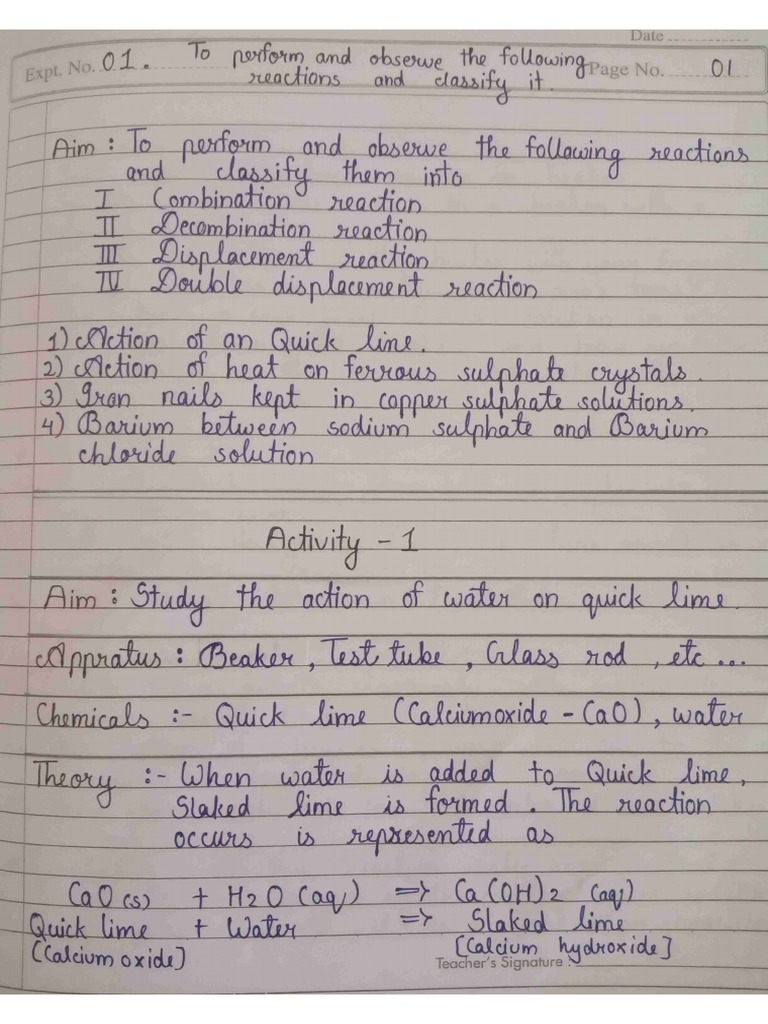 Date
Expt. No. 01. To perform and observe the following Page No. 01
reactions and classify it.
Aim : To perform and observe the following reactions
and classify them into
I Combination reaction
II Decombination reaction
III Displacement reaction
IV Double displacement reaction
1) Action of an Quick line.
2) Action of heat on ferrous sulphate crystals.
3) Iron nails kept in copper sulphate solutions.
4) Barium between sodium sulphate and Barium
chloride solution
Activity - 1
Aim : Study the action of water on quick lime.
Appratus : Beaker, Test tube, Glass rod, etc ...
Chemicals :- Quick lime (Calciumoxide - CaO), water
Theory :- When water is added to Quick lime,
Slaked lime is formed. The reaction
occurs is represented as
CaO (s) + H2O (aq) => Ca(OH)2 (aq)
Quick lime + Water => Slaked lime
(Calcium oxide] [Calcium hydroxide]
Teacher's Signature :